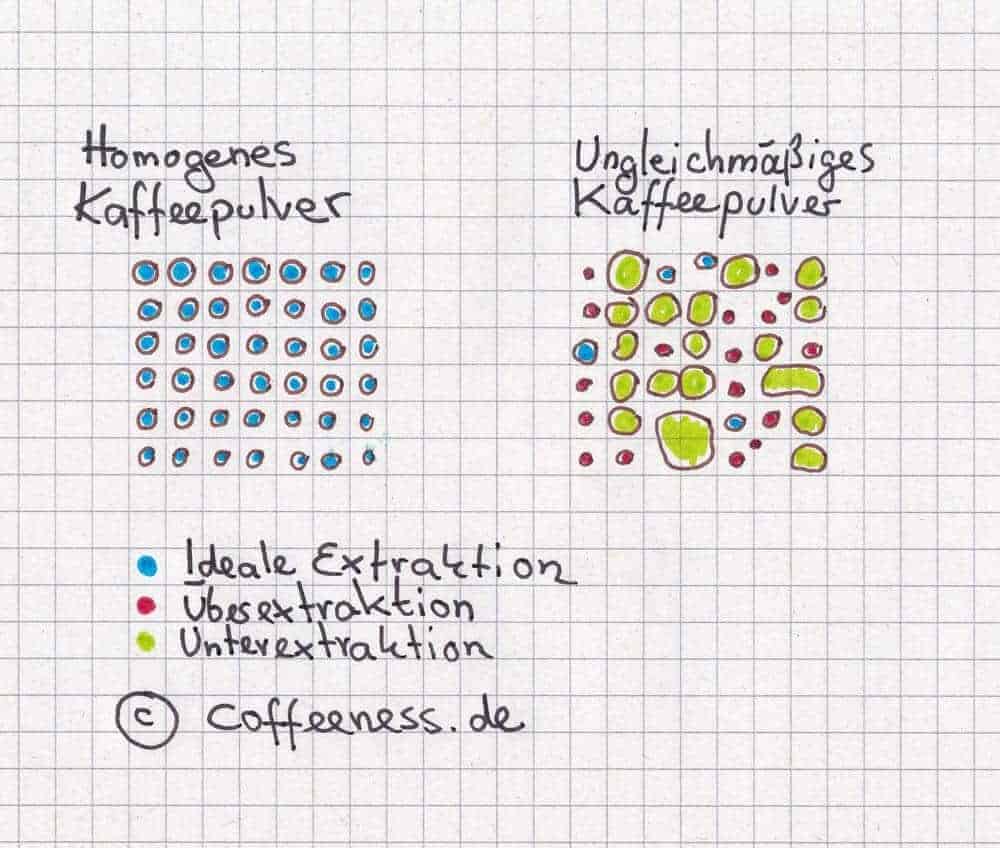 Homogenes
Kaffeepulver
Ungleichmäßiges
Kaffeepulver
Ideale Extraktion
Überextraktion
Unterextraktion
© coffeeness.de